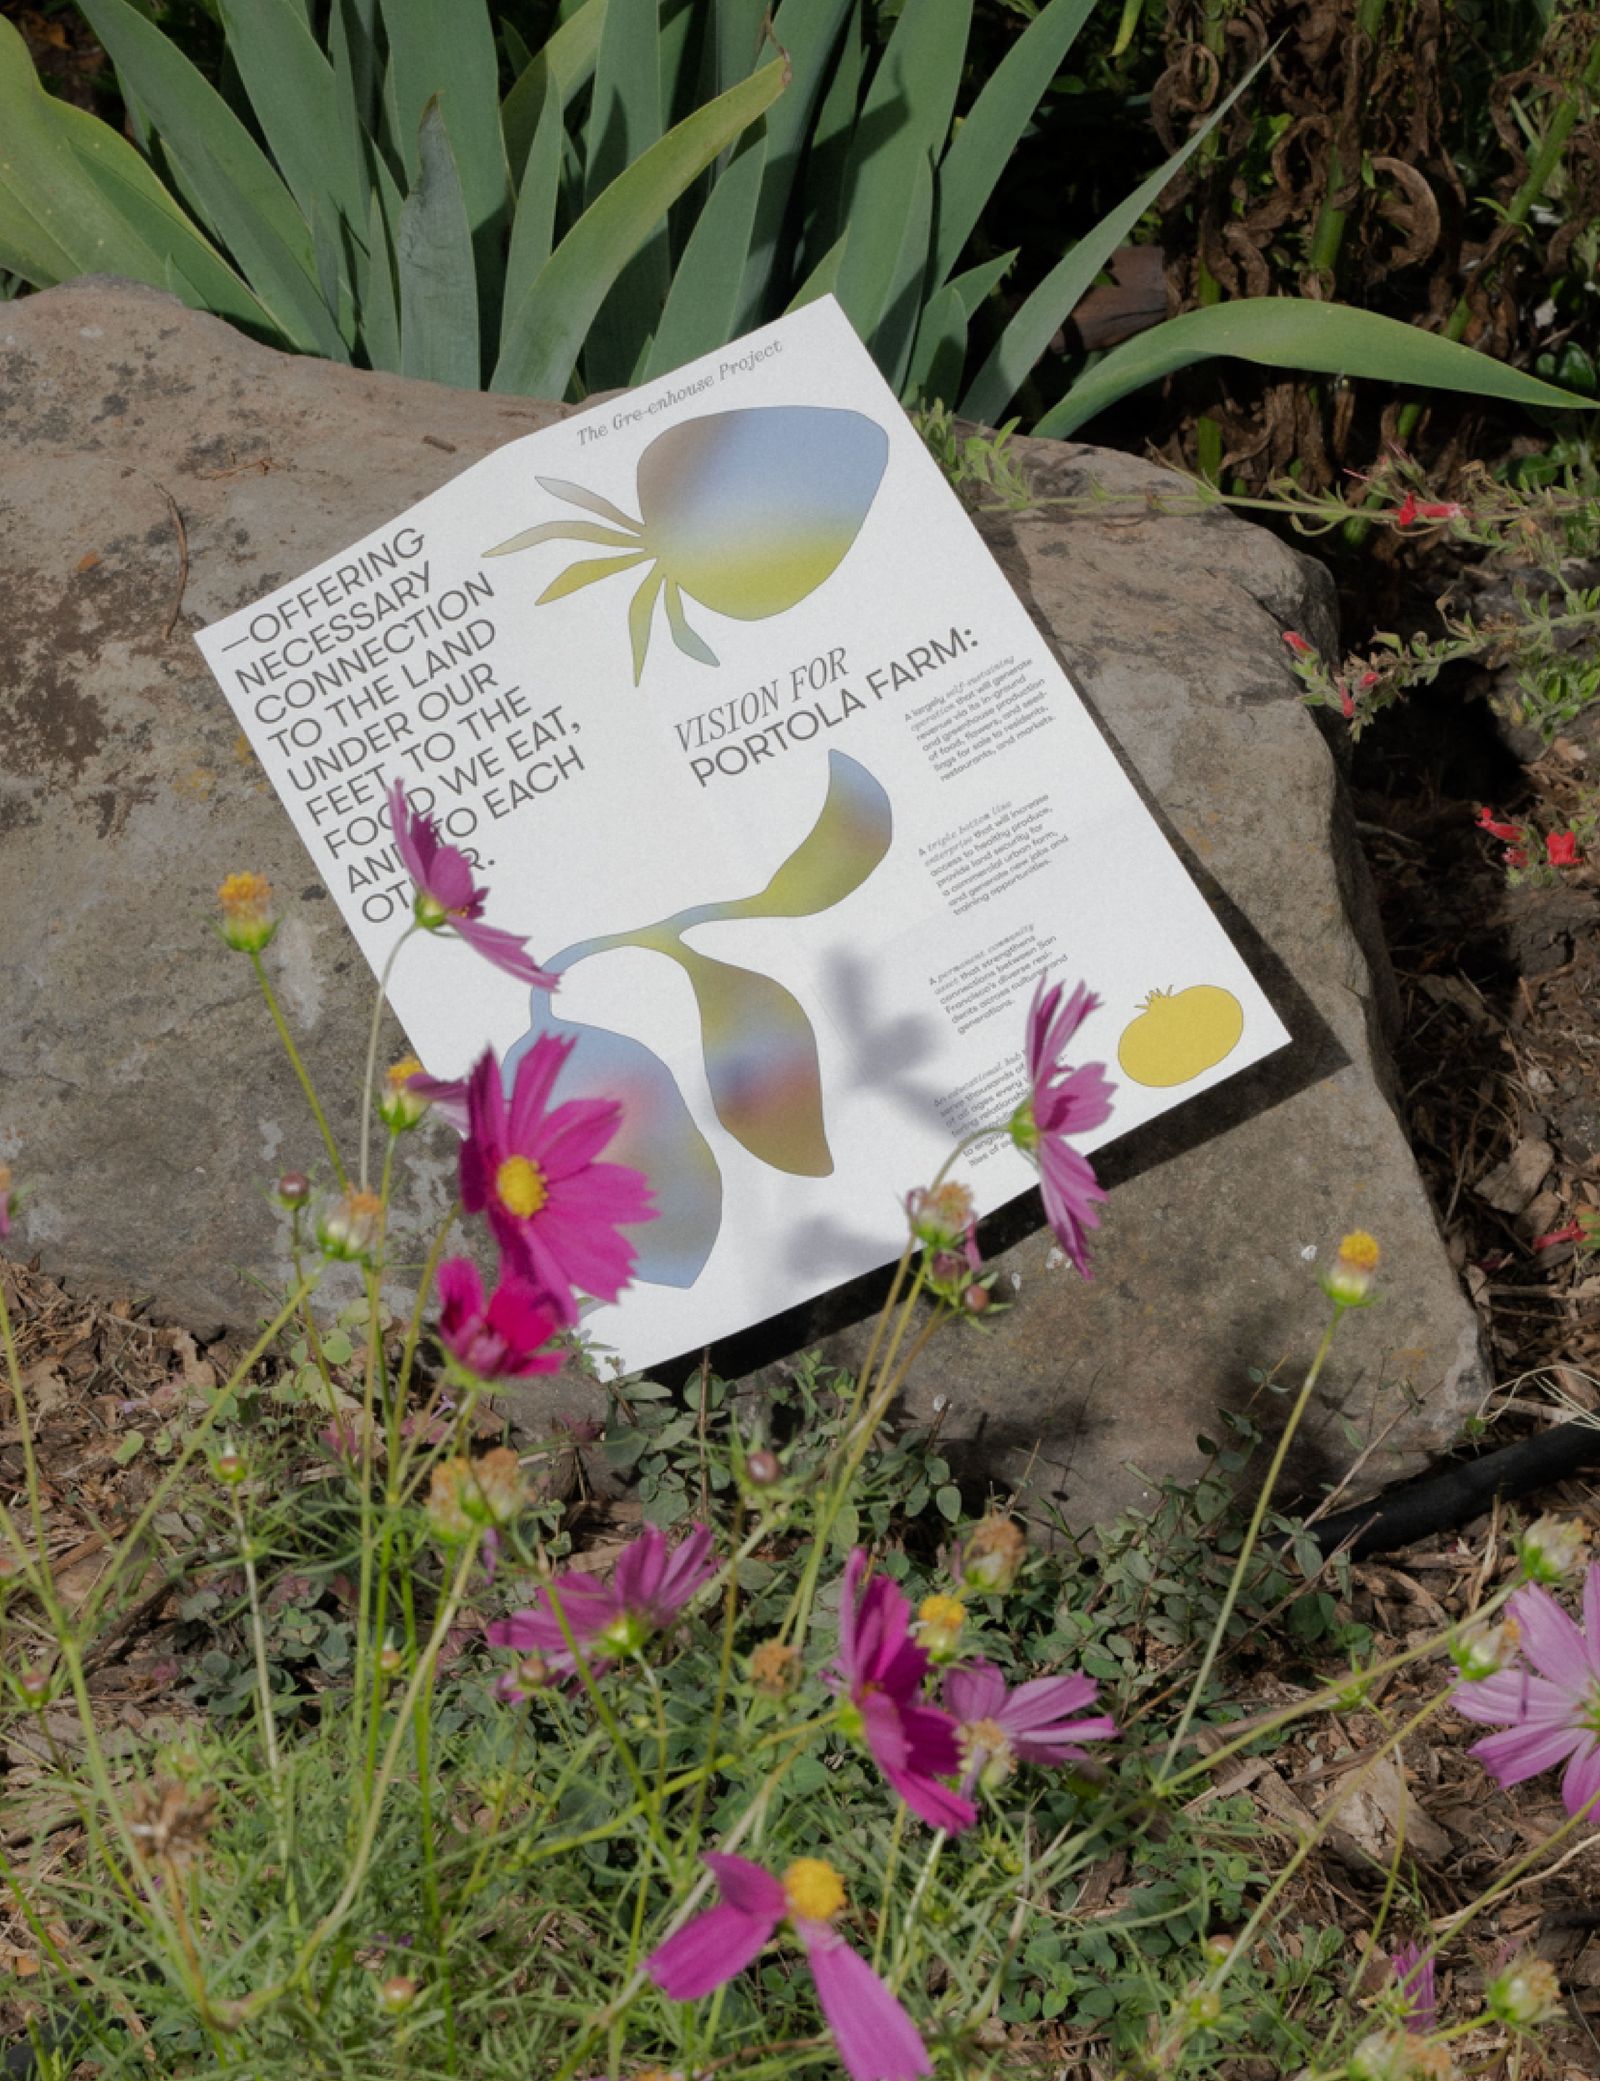 The Gre-enhouse Project
—OFFERING
NECESSARY
CONNECTION
TO THE LAND
UNDER OUR
FEET, TO THE
FOOD WE EAT,
AND TO EACH
OTHER.
VISION FOR
PORTOLA FARM:
A largely self-sustaining
operation that will generate
revenue via its in-ground
and greenhouse production
of food, flowers, and seed-
lings for sale to residents,
restaurants, and markets.
A triple bottom line
enterprise that will increase
access to healthy produce,
provide land security for
a commercial urban farm,
and generate new jobs and
training opportunities.
A permanent community
asset that strengthens
connections between San
Francisco's diverse resi-
dents across culture and
generations.
An educational hub
serve thousands of
of all ages every
relationship
to engage